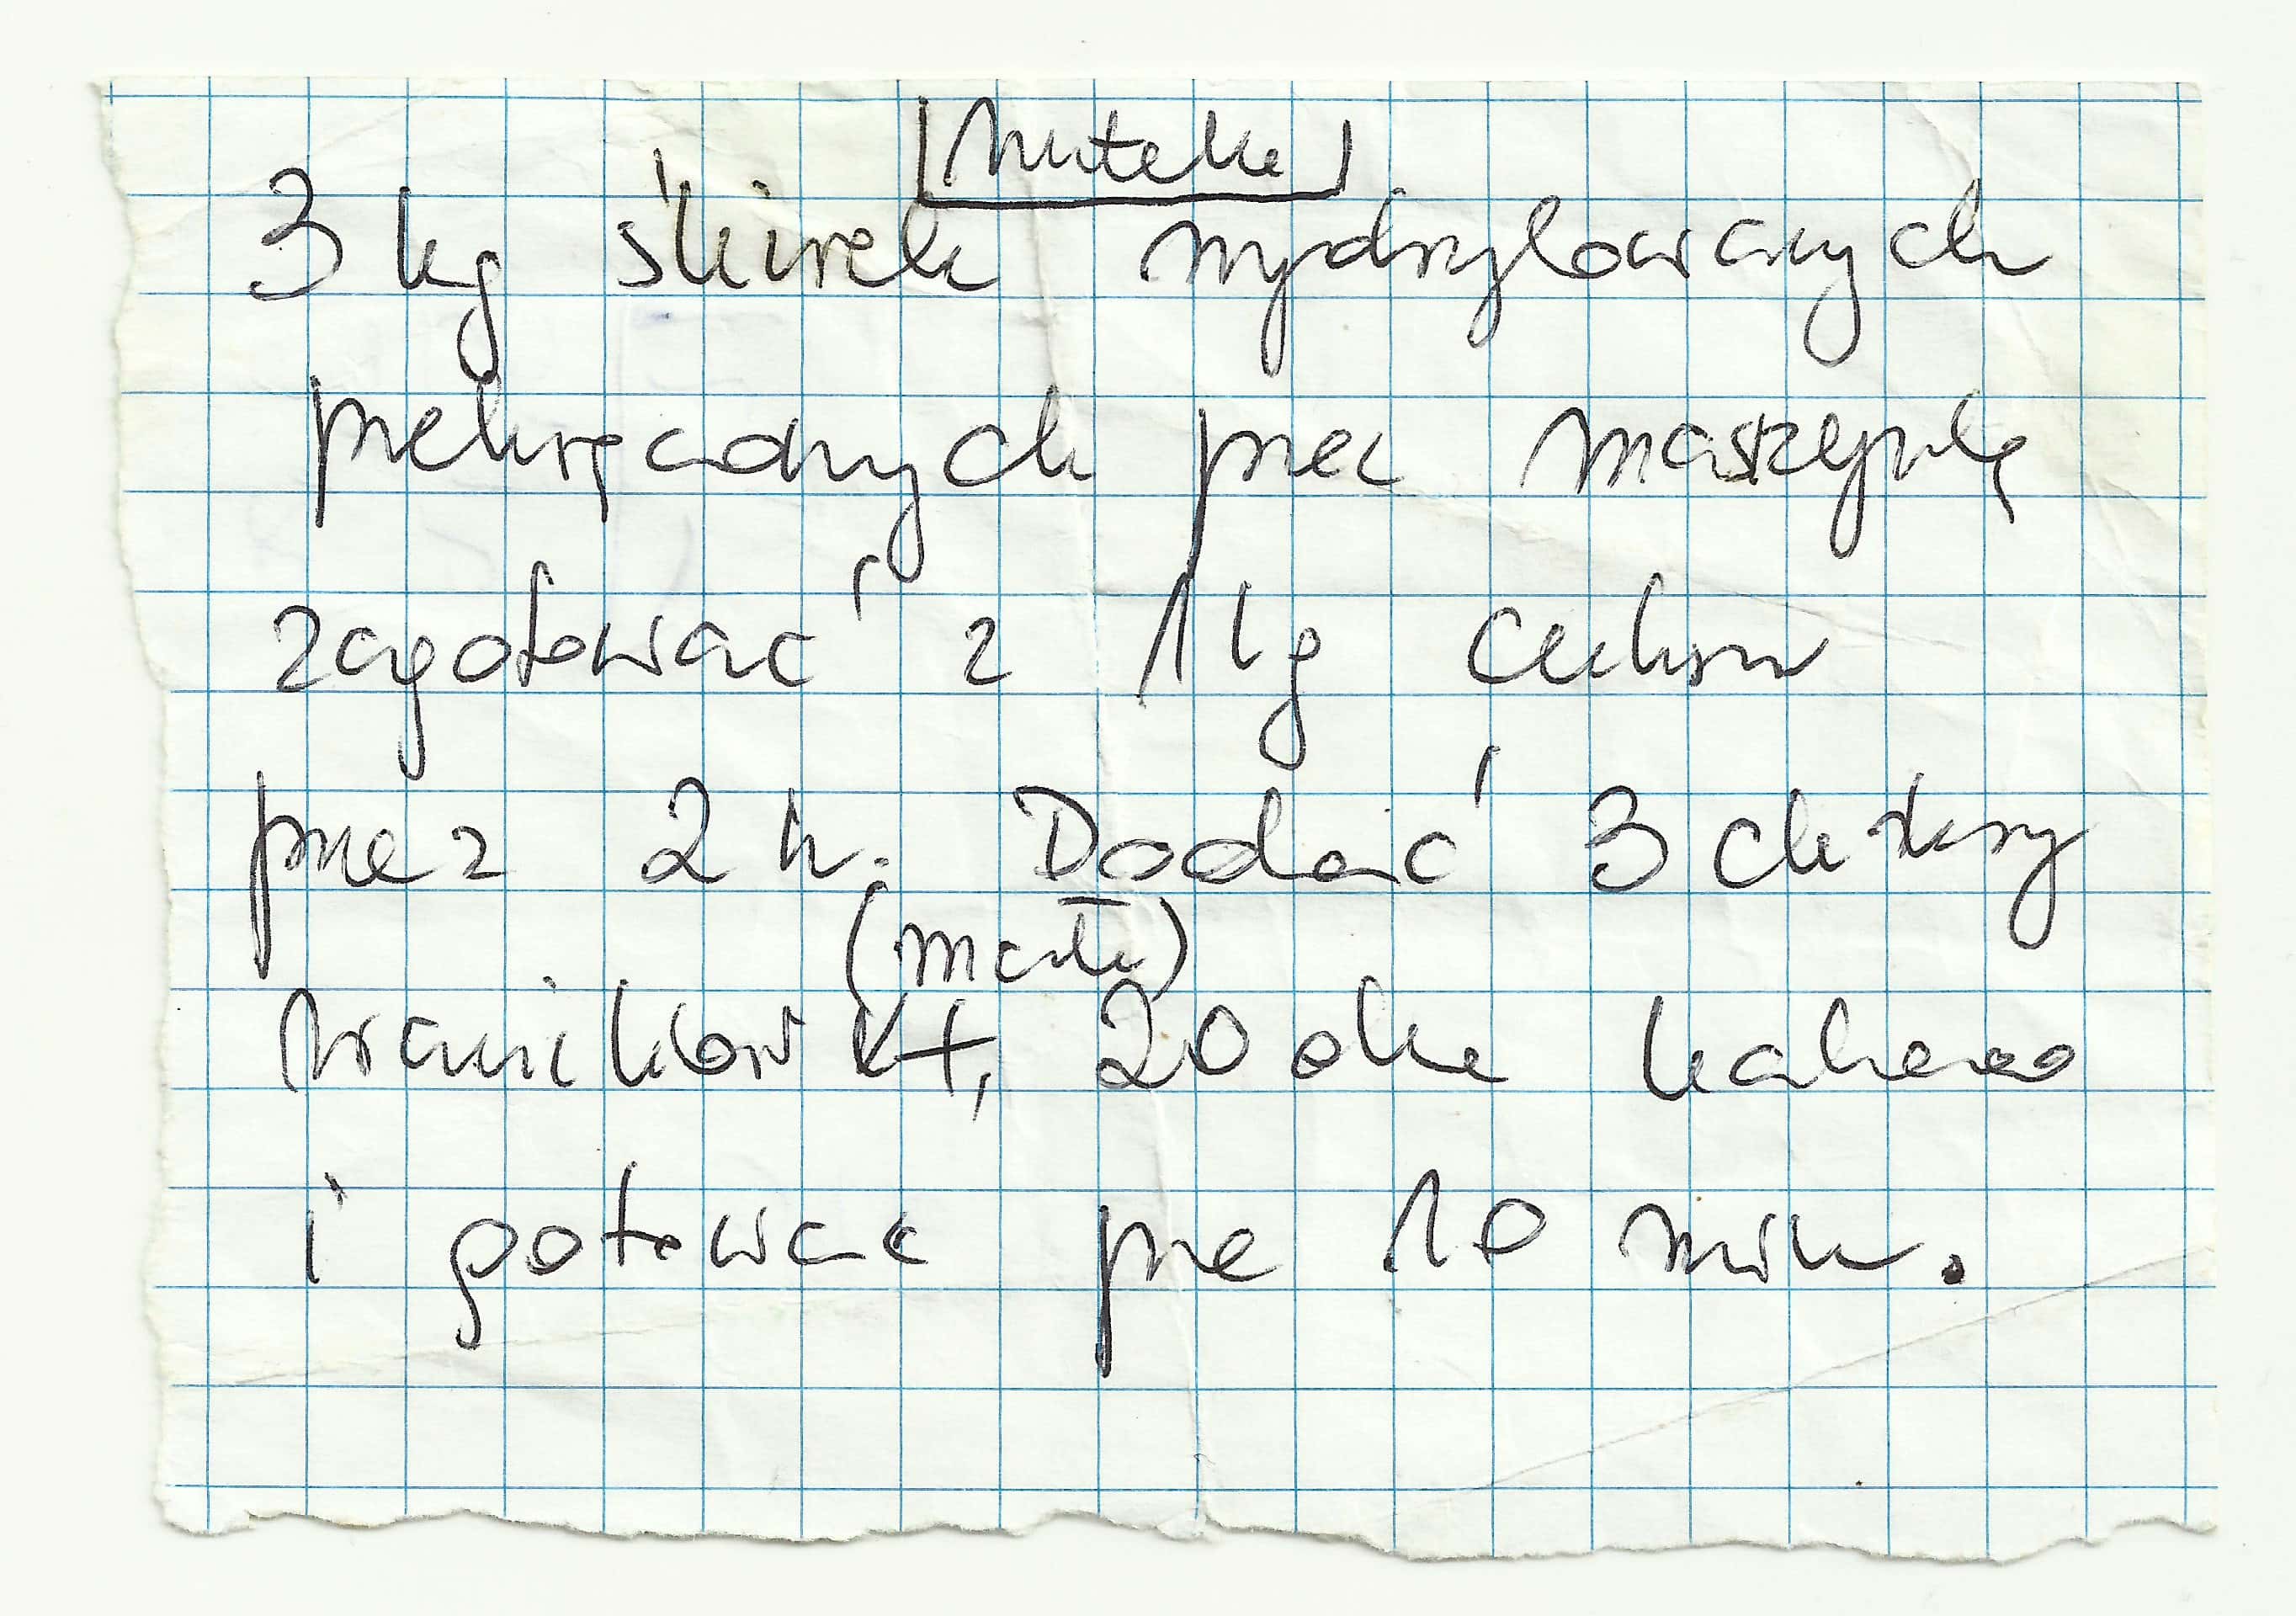 Nutella
3 kg śliwek wydrylowanych
przekręconych przez maszynkę
zagotować z 1 kg cukru
przez 2 h. Dodać 3 cukry
(małe)
waniliowe, 20 dk kakao
i gotować prze 10 min.